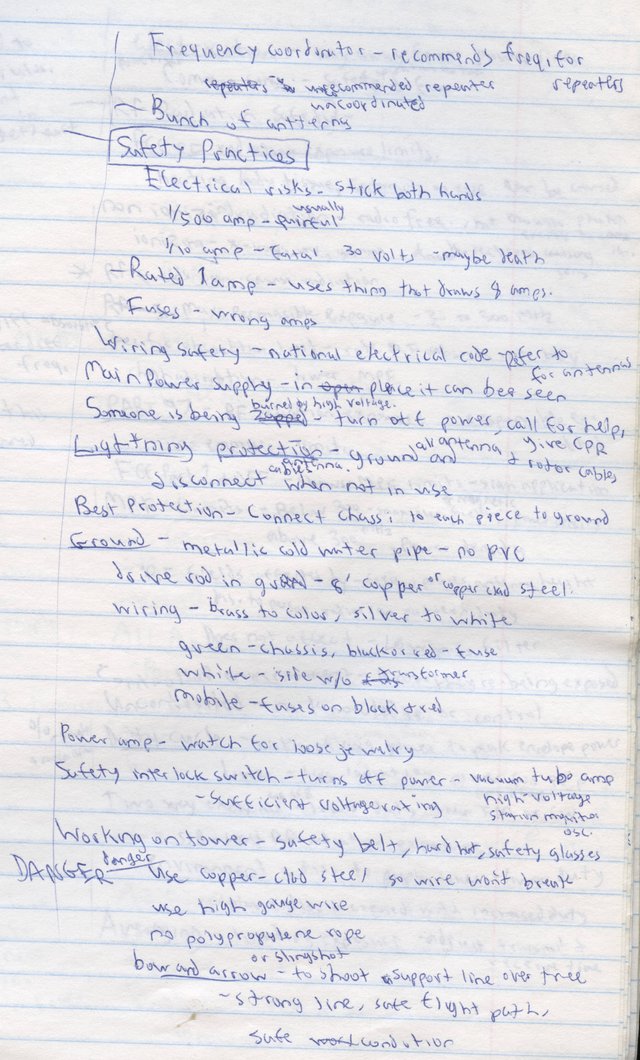 Frequency coordinator - recommends freq. for repeaters
repeaters unrecommended repeater
uncoordinated
Bunch of antterns
Safety Practices
Electrical risks - stick both hands
1/500 amp - usually painful
1/10 amp - fatal 30 volts - maybe death
- Rated 1 amp - uses thing that draws 8 amps.
Fuses - wrong amps
Wiring safety - national electrical code - Refer to for antennas
Main Power Supply - in open place it can bee seen
Someone is being zapped burned by high voltage. - turn off power, call for help, give CPR
Lightning protection - ground all antenna & rotor cables
disconnect antenna cables when not in use
Best Protection - Connect chassi to each piece to ground
Ground - metallic cold water pipe - no PVC
drive rod in - 8' copper or copper clad steel.
wiring - brass to color, silver to white
green - chassis, black or red - fuse
white - side w/o transformer
mobile - fuses on black & red
Power amp - watch for loose jewelry
Safety interlock switch - turns off power - vacuum tube amp
- sufficient voltage rating high-voltage
station monitor
osc.
Working on tower - safety belt, hard hat, safety glasses
DANGER danger use copper-clad steel so wire won't break
use high gauge wire
no polypropylene rope
bow and arrow or slingshot - to shoot support line over tree
- strong line, safe flight path,
safe condition